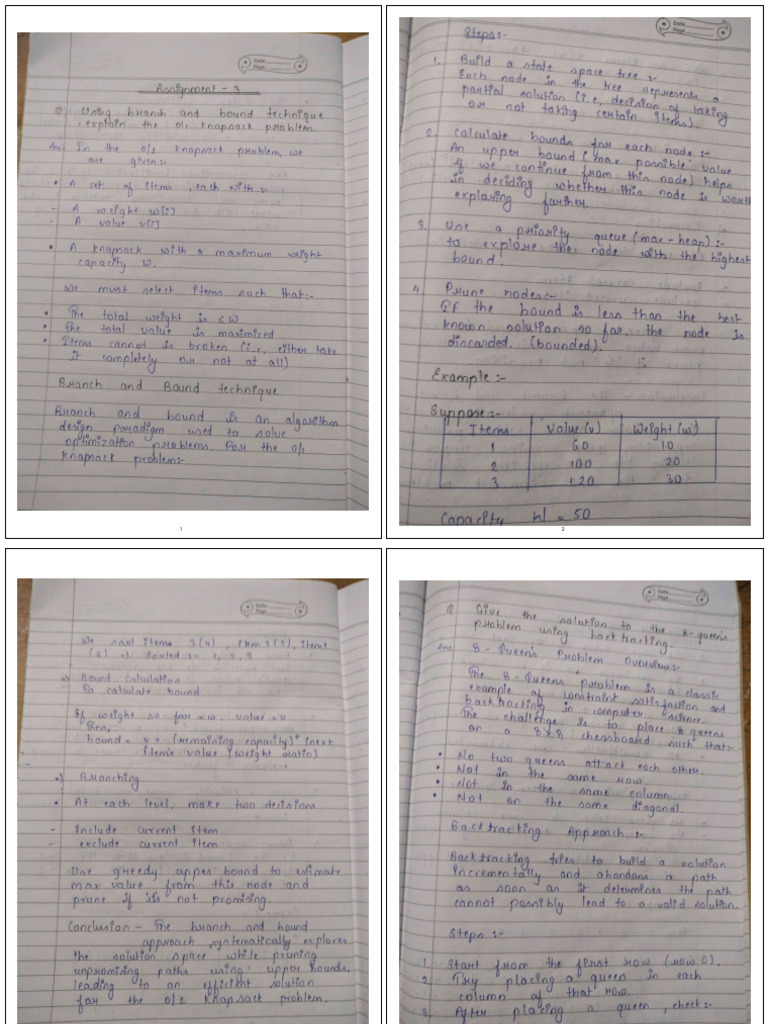 Date
Page
Assignment - 3
Q. Using branch and bound technique
explain the 0/1 knapsack problem.
Ans In the 0/1 knapsack problem, we
are given:-
• A set of items, each with :-
- A weight w[i]
- A value v[i]
• A knapsack with a maximum weight
capacity W.
We must select items such that:-
• The total weight is ≤ W
• The total value is maximized
• Items cannot is broken (i.e, either take
it completely or not at all)
Branch and Bound technique
Branch and bound is an algorithm
design paradigm used to solve
optimization problems. For the 0/1
knapsack problem:-
1
Date
Page
Steps:-
1. Build a state space tree :-
Each node in the tree represents a
partial solution (i.e, decision of taking
or not taking certain items).
2. Calculate bounds for each node:-
An upper bound (max possible value
if we continue from this node) helps
in deciding whether this node is worth
exploring further.
3. Use a priority queue (max-heap) :-
to explore the node with the highest
bound.
4. Prune nodes:-
If the bound is less than the best
known solution so far, the node is
discarded. (bounded).
Example :-
Suppose:-
Items Value (v) Weight (w)
1 60 10
2 100 20
3 120 30
Capacity W = 50
2
Date
Page
We sort items 3(4), item 2(5), item 1
(6) Sorted :- 1, 2, 3
Bound calculation
To calculate bound
If weight so far = w, value = v
Then,
bound = v + (remaining capacity)* (next
item's value / weight ratio)
Branching
• At each level, make two decisions
- include current item
- exclude current item
Use greedy upper bound to estimate
max value from this node and
prune if is not promising.
Conclusion - The branch and bound
approach systematically explores
the solution space while pruning
unpromising paths using upper bounds,
leading to an efficient solution
for the 0/1 knapsack problem.
Date
Page
Q Give the solution to the 8-queen's
problem using backtracking.
Ans 8-Queen's Problem Overview:-
The 8-Queens problem is a classic
example of constraint satisfaction and
backtracking in computer science.
The challenge is to place 8 queens
on a 8x8 chessboard such that:-
• No two queens attack each other.
• Not in the same row.
• Not in the same column
• Not on the same diagonal.
Backtracking Approach :-
Backtracking tries to build a solution
incrementally and abandons a path
as soon as it determines the path
cannot possibly lead to a valid solution.
Steps :-
1. Start from the first row (row 0).
2. Try placing a queen in each
column of that row.
3. After placing a queen, check:-